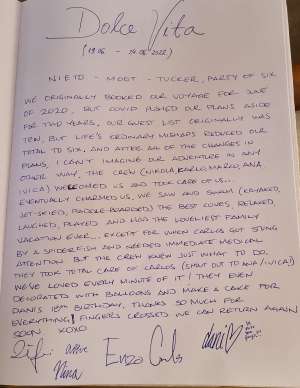 Dolce Vita
NIETO - MOGT - TUCKER, PARTY OF SIX
WE ORIGINALLY BOOKED OUR VOYAGE FOR JUNE
OF 2020, BUT COVID PUSHED OUR PLANS ASIDE
FOR TWO YEARS, OUR GUEST LIST ORIGINALLY WAS
TEN, BUT LIFE'S ORDINARY MISHAPS REDUCED OUR
TOTAL TO SIX, AND AFTER ALL OF THE CHANGES IN
PLANS, I CAN'T IMAGINE OUR ADVENTURE IN ANY
OTHER WAY. THE CREW (NIKOLA, KARLO, MARIO, ANA
IVICA) WELCOMED US AND TOOK CARE OF US...
EVENTUALLY CHARMED US, WE SAW AND SWAM (KAYAKED,
JET-SKIED, PADDLE-BOARDED) THE BEST COVES, RELAXED,
LAUGHED, PLAYED AND HAD THE LOVELIEST FAMILY
VACATION EVER... EXCEPT FOR WHEN CARLOS GOT STUNG
BY A SPIDERFISH AND NEEDED IMMEDIATE MEDICAL
ATTENTION BUT THE CREW KNEW JUST WHAT TO DO,
THEY TOOK TOTAL CARE OF CARLOS (SHOUT OUT TO ANA/IVICA!)
WE'VE LOVED EVERY MINUTE OF IT! THEY EVEN
DECORATED WITH BALLOONS AND MAKE A CAKE FOR
DANI'S 18TH BIRTHDAY, THANKS SO MUCH FOR
EVERYTHING! FINGERS CROSSED WE CAN RETURN AGAIN
SOON XOXO
Enzo Carlos